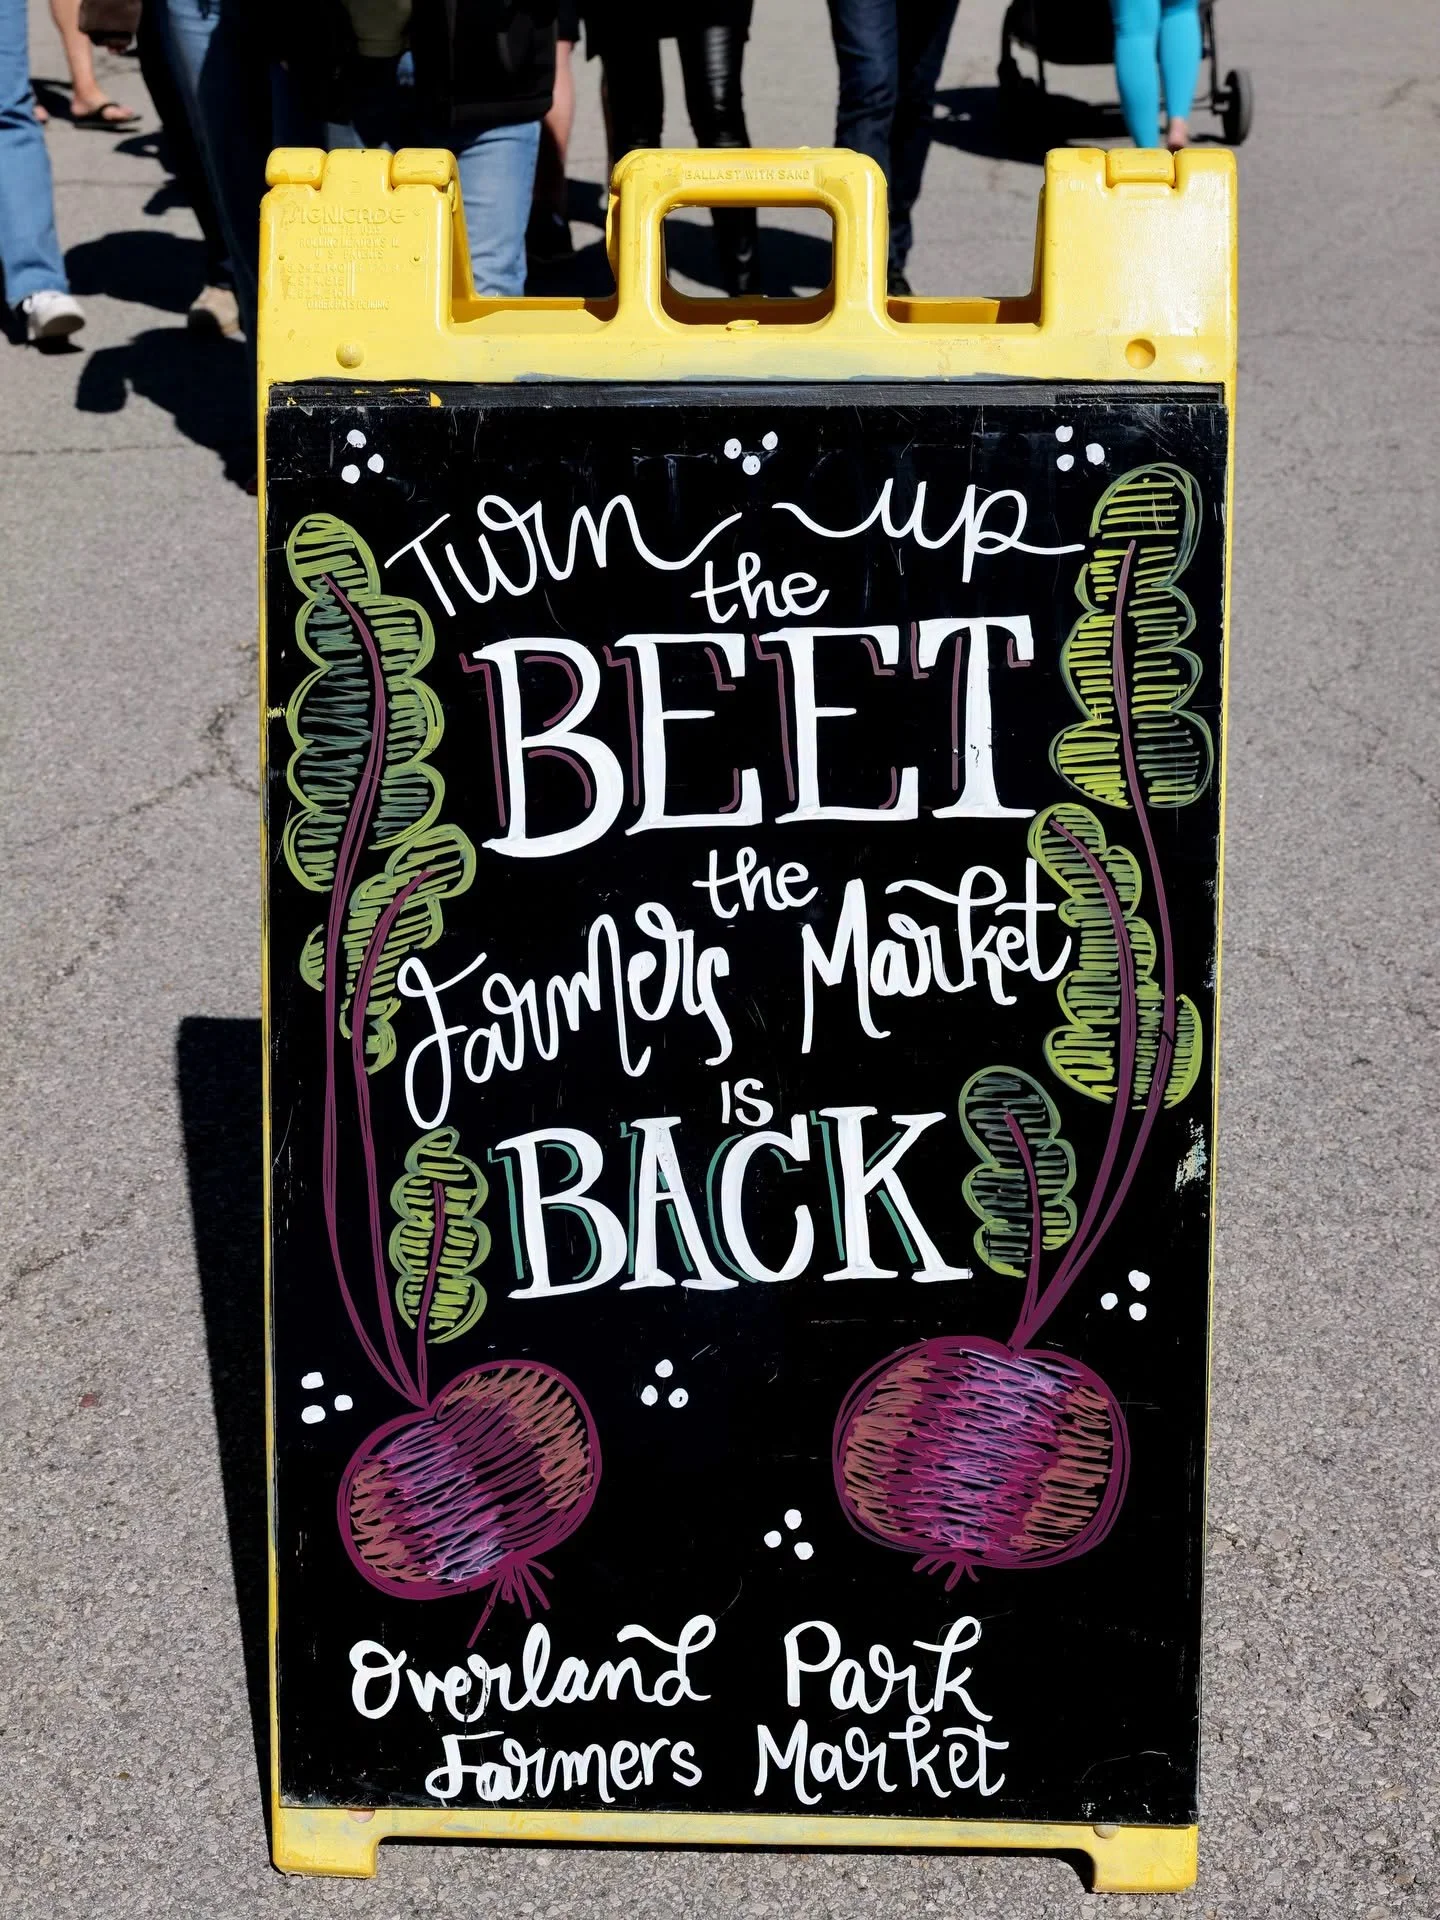 BALLAST WITH SAND
SIGNICADE
Turn up
the
BEET
the
Farmers Market
is
BACK
Overland Park
Farmers Market